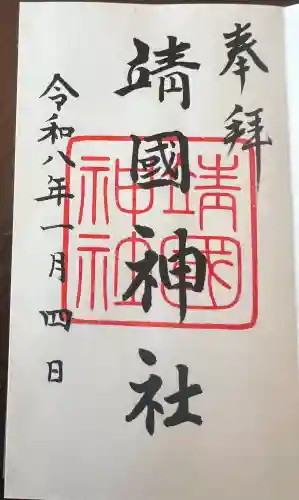 奉拝
靖國神社
靖國神社
令和八年一月四日